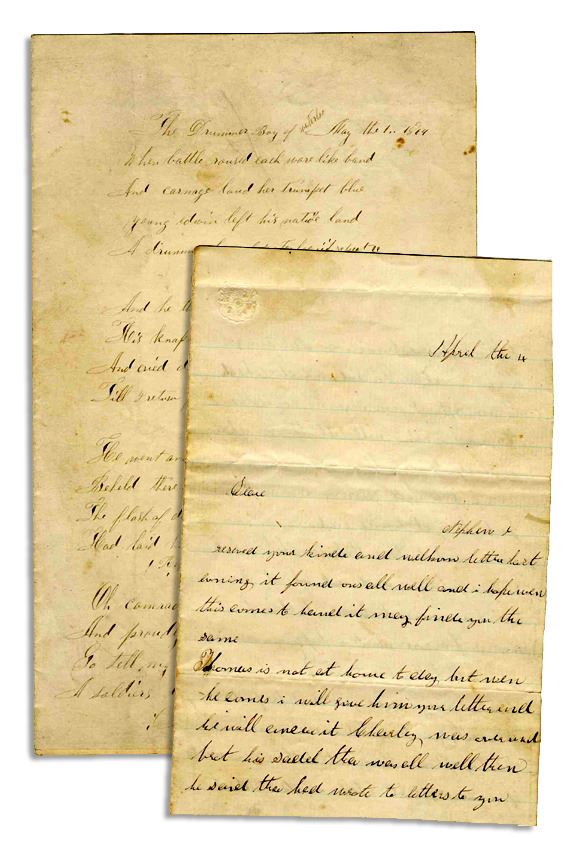 The Drummer Boy of waterloo May the 1. 1864
When battle roused each ware like band
And carnage loud her trumpet blue
young edwin left his native land
A drummer
And he
His knap
And cried
Till I return
He went an
Beheld there
The flash of d
Had laid h
Oh comrad
And proudl
Go tell my
A soldiers
April the 4
Deare
Nephew I
reseved your kinde and welkom letter last
evening it found ous all well and i hope wen
this comes to hand it may finde you the
same
Thomas is not at home to day but wen
he comes i will give him your letter and
he will it Charley was over and
bret his saddel thea was all well then
he said thea had wrote to letters to you